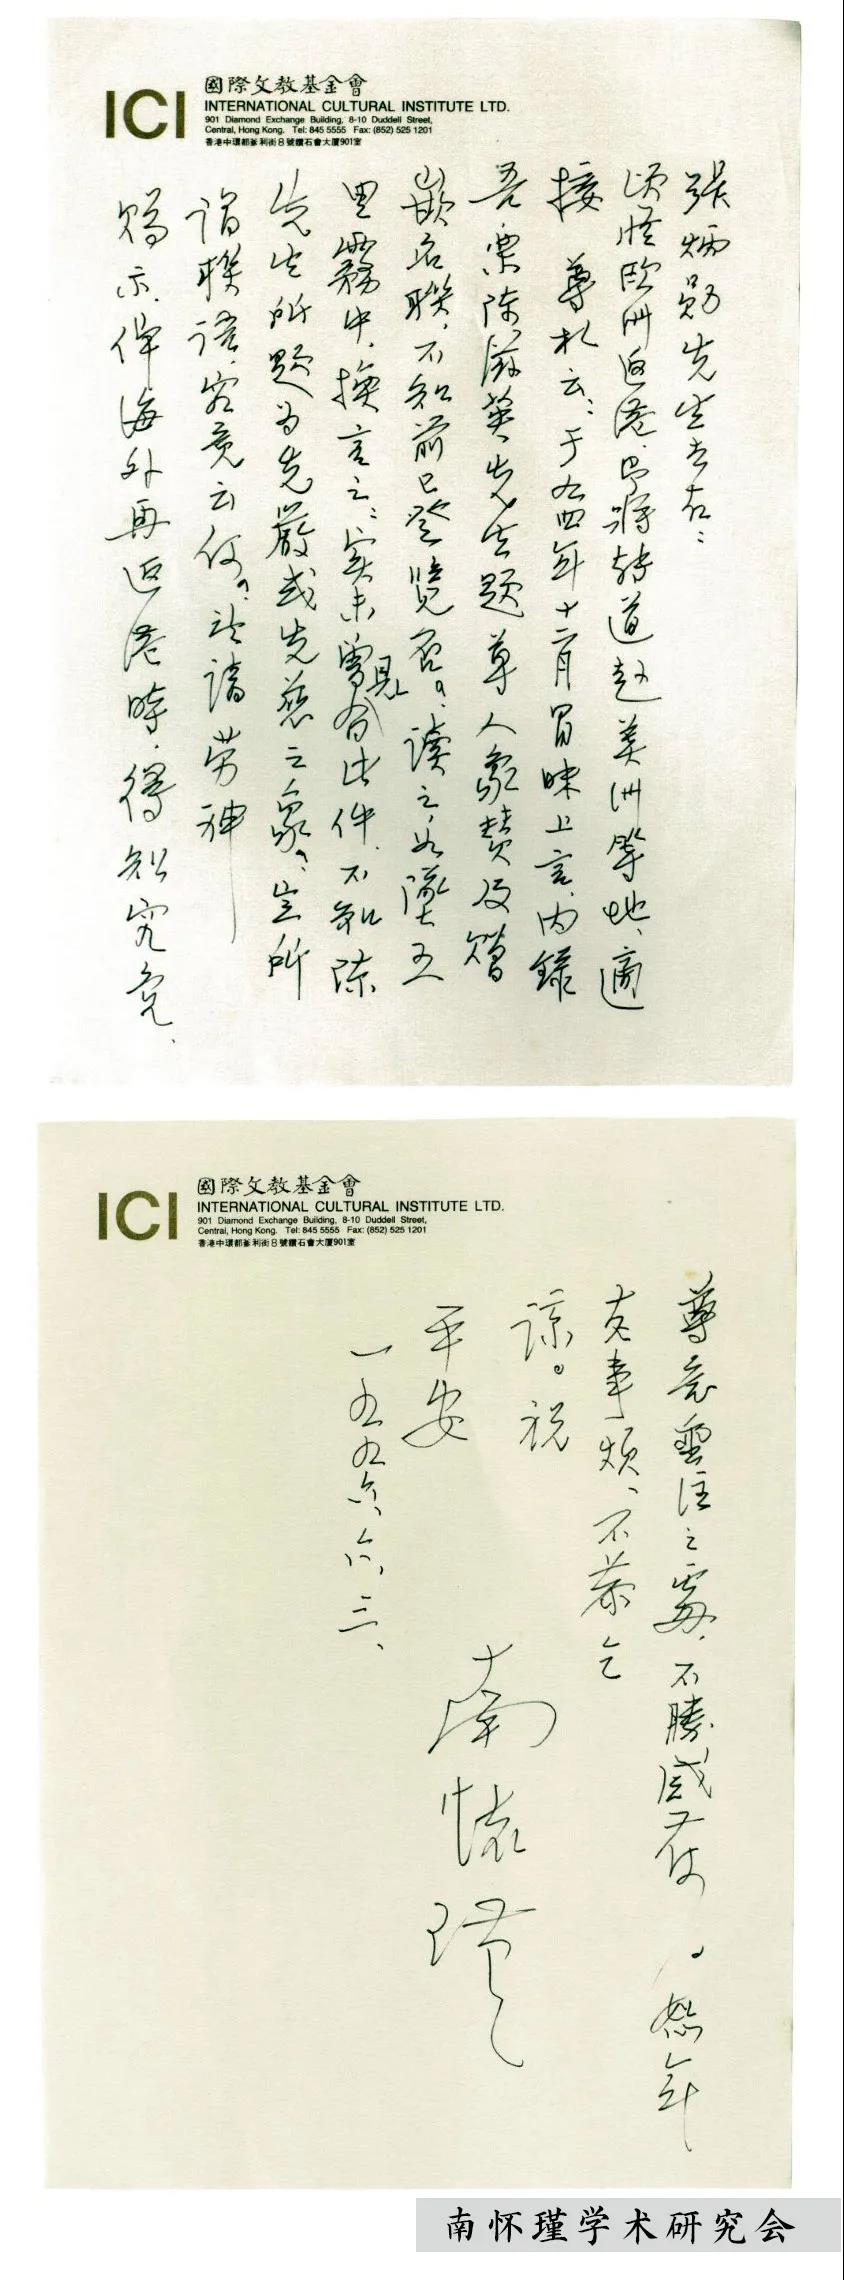 ICI
國際文教基金會
INTERNATIONAL CULTURAL INSTITUTE LTD.
901 Diamond Exchange Building, 8-10 Duddell Street,
Central, Hong Kong. Tel: 845 5555 Fax: (852) 525 1201
香港中環都爹利街8號鑽石會大廈901室
張炳勛先生大右：
頃從歐洲返港，即將轉道赴美洲等地，適
接 尊札云：于九四年十二月冒昧上言，内錄
吾樂陳滋英先生題尊人象贊及贈
嵌名聯，不知前已登覽否？讀之如墜五
里霧中，換言之：實未曾見有此件，不知陳
先生所題为先嚴或先慈之象？豈所
謂聯語，究竟云何？並請勞神
賜示，俾海外再返港時，得知究竟、
ICI
國際文教基金會
INTERNATIONAL CULTURAL INSTITUTE LTD.
901 Diamond Exchange Building, 8-10 Duddell Street,
Central, Hong Kong. Tel: 845 5555 Fax: (852) 525 1201
香港中環都爹利街8號鑽石會大廈901室
尊意垂注之處，不勝感荷 匆匆年
老事煩、不恭乞
諒。祝
平安
南懷瑾
一九九六、六、三、
南怀瑾学术研究会